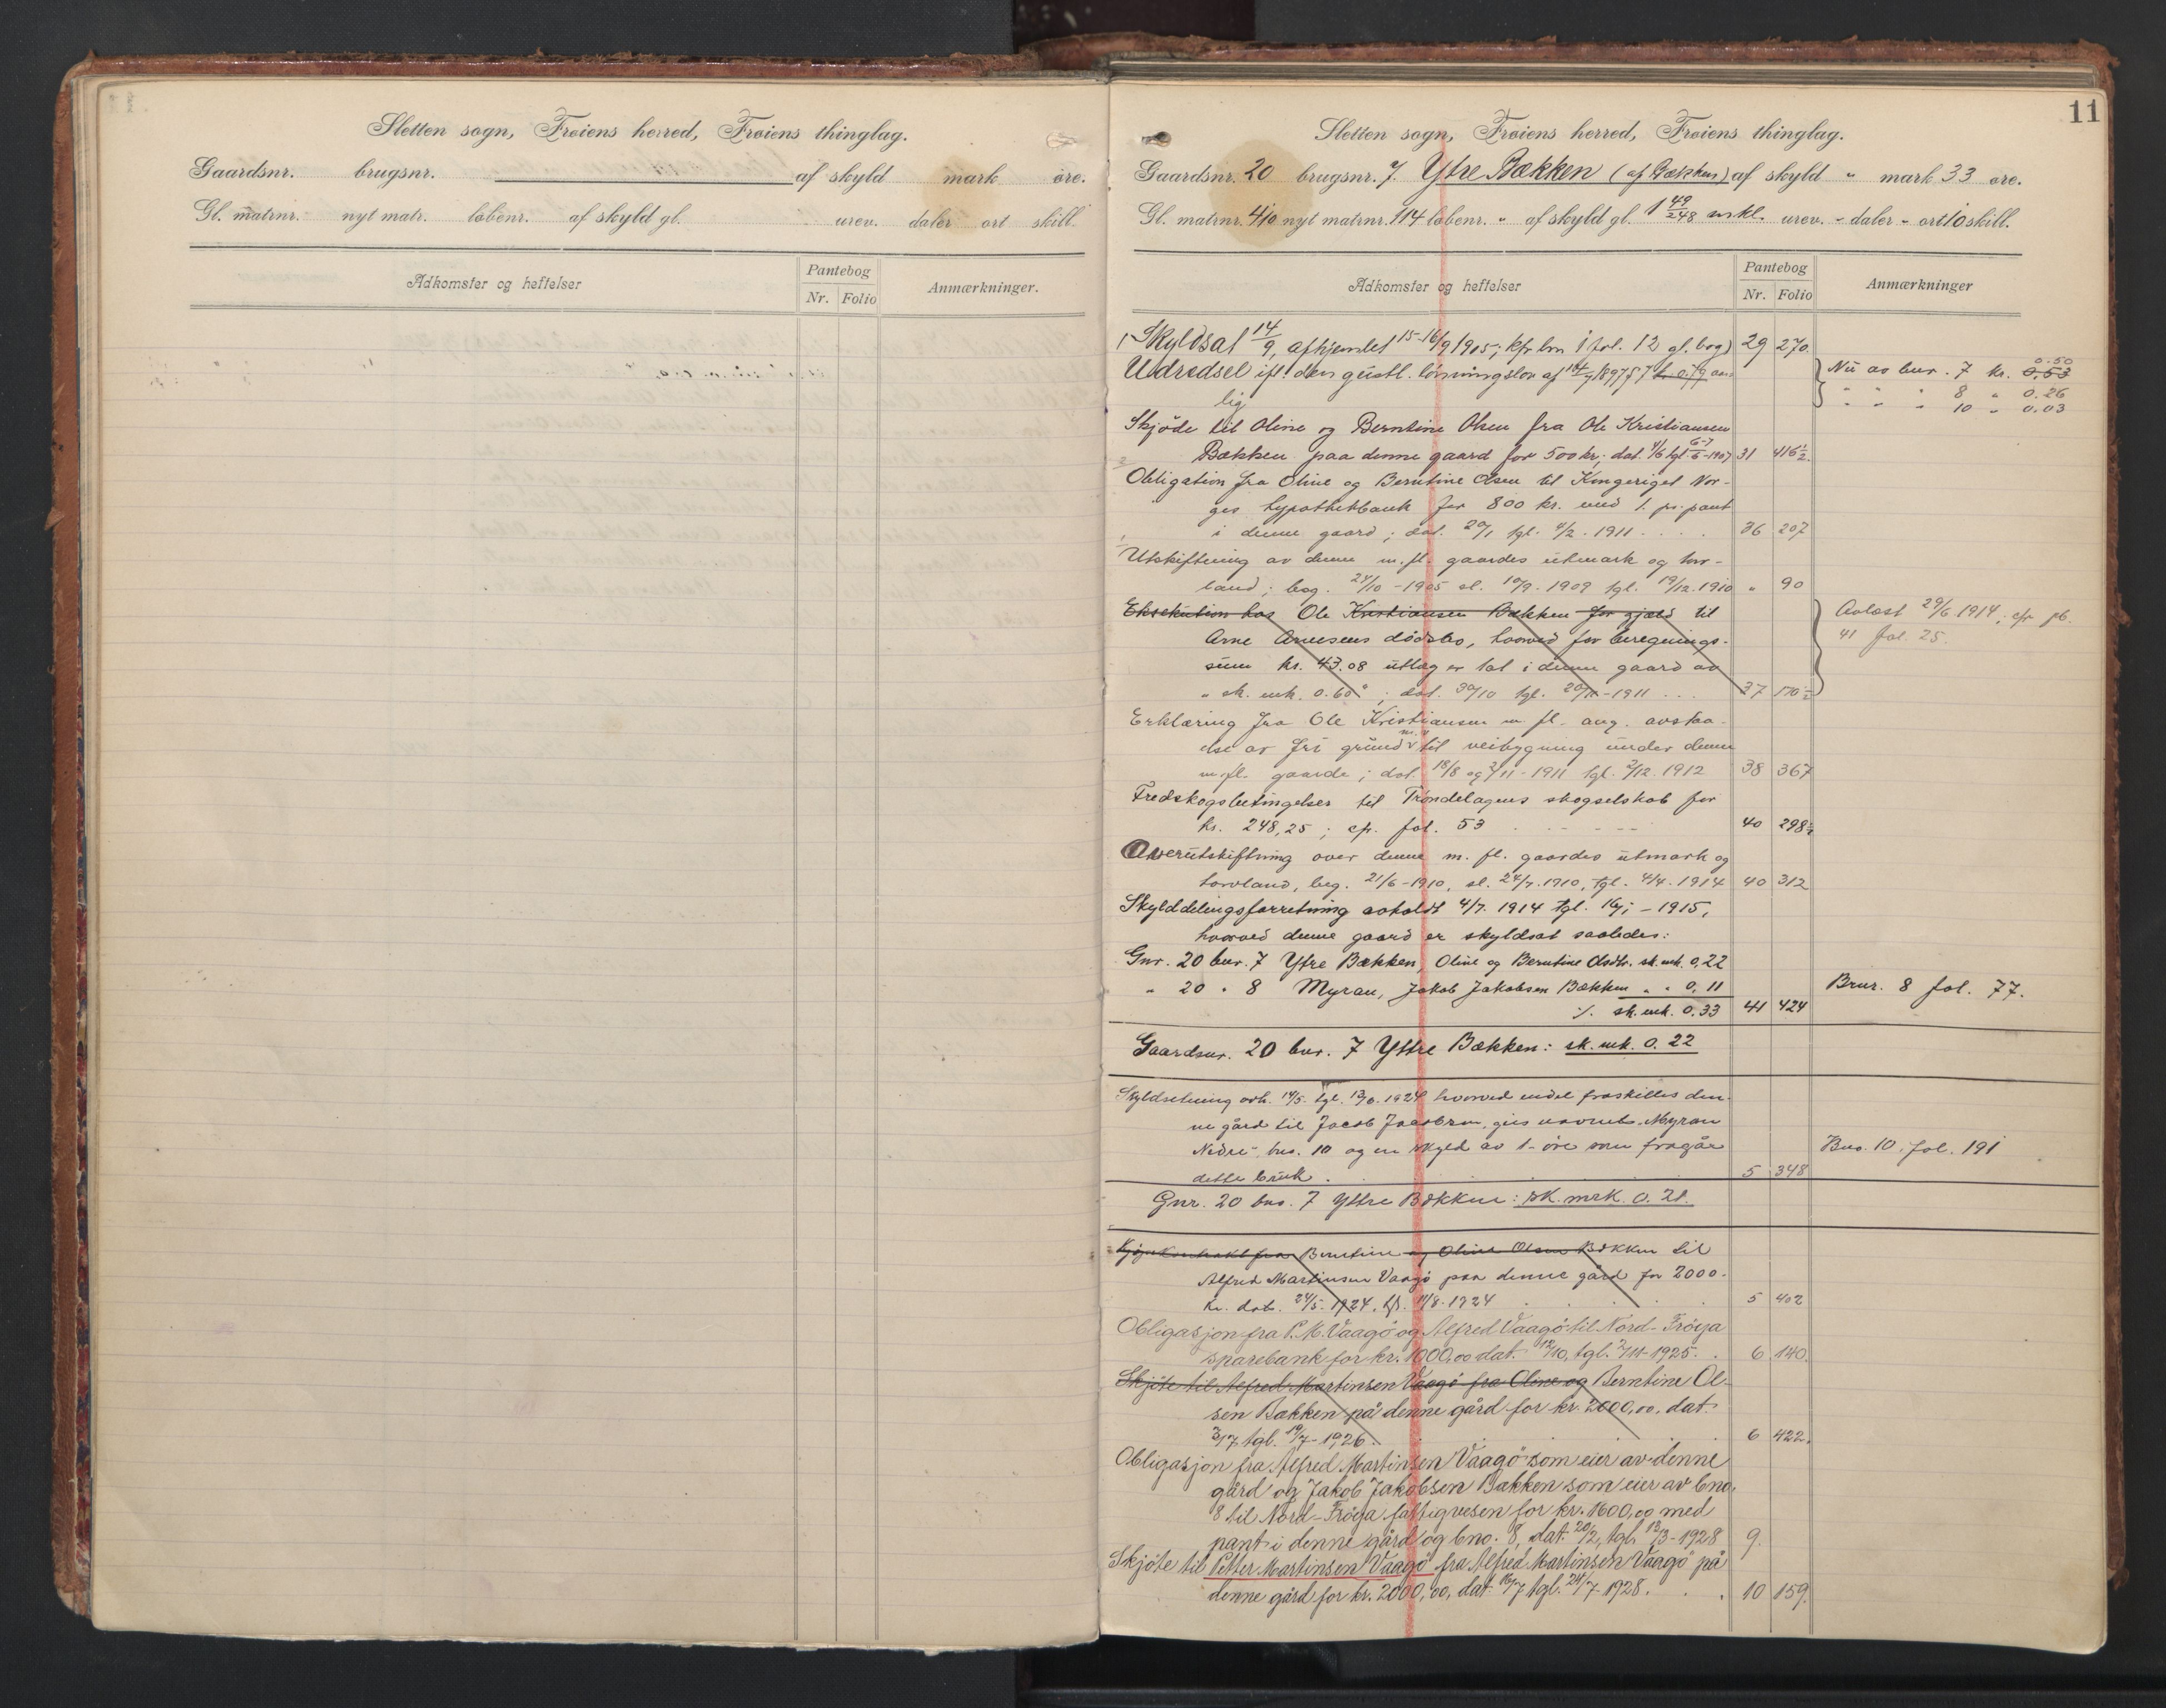 Sletten sogn, Frøiens herred, Frøiens thinglag.
Gaardsnr. brugsnr. af skyld mark øre.
Gl. matrnr. nyt matr. løbenr. af skyld gl. urev. daler ort skill.
Adkomster og heftelser
Pantebog
Nr. Folio
Anmærkninger.
11
Sletten sogn, Frøiens herred, Frøiens thinglag.
Gaardsnr. 20 brugsnr. 7. Ytre Bækken (af Bækken) af skyld " mark 33 øre.
Gl. matrnr. 410 nyt matrnr. 114 løbenr. " af skyld gl. 1 49/248 mkl. urev. - daler - ort 10 skill.
Adkomster og heftelser
Pantebog
Nr. Folio
Anmærkninger
Skyldsat 14/9, afhjemlet 15-16/9 1905; kfr. bn 1 fol. 12 gl. bog) 29 270.
Udredsel ifl. den geistl. lønningslov af 14/7 1897 § 7 aar-
lig
Nu av bnr. 7 kr. 0.53 0.50
" " " 8 " 0.26
" - " 10 " 0.03
Skjøde til Oline og Berntine Olsen fra Ole Kristiansen
Bækken paa denne gaard for 500 kr; dat. 4/6 tgl. 6-7/6-1907 31 416½.
Obligation fra Oline og Berntine Olsen til Kongeriget Nor-
ges hypothekbank for 800 kr. med 1. pr. pant
i denne gaard; dat. 20/1 tgl. 4/2. 1911 . . . . 36 207
Utskiftning av denne m. fl. gaardes utmark og torv-
land; beg. 24/10-1905 sl. 10/9. 1909 tgl. 19/12. 1910 " 90
Eksekution hos Ole Kristiansen Bækken for gjæld til
Arne Arnesens dødsbo, hvorved for beregnings-
sum kr. 43.08 utlæg er tat i denne gaard av
" sk. mk. 0.60"; dat. 30/10 tgl. 20/11-1911 ... 37 170½
Avlæst 29/6 1914; cfr pb.
41 fol. 25.
Erklæring fra Ole Kristiansen m. fl. ang. avstaa-
else av fri grund m.v. til veibygning under denne
m. fl. gaarde; dat. 18/8 og 2/11-1911 tgl. 2/12. 1912 38 367
Fredskogsbetingelser til Trøndelagens skogselskab for
kr. 248,25; cfr. fol. 53 . . . 40 298½
Overutskiftning over denne m. fl. gaardes utmark og
torvland, beg. 21/6-1910, sl. 24/7. 1910, tgl. 4/4. 1914 40 312
Skylddelingsforretning avholdt 4/7. 1914 tgl. 16/1-1915,
hvorved denne gaard er skyldsat saaledes:
Gnr. 20 bnr. 7 Ytre Bækken, Oline og Berntine Olsdtr. sk. mk. 0,22
" 20 " 8 Myran, Jakob Jakobsen Bækken " " 0,11
./. sk. mk. 0.33 41 424
Brnr. 8 fol. 77.
Gaardsnr. 20 bnr. 7 Yttre Bækken: sk. mk. 0.22
Skyldsetning avh. 14/5. tgl. 13/6. 1924 hvorved endel fraskilles den-
ne gård til Jacob Jacobsen, gis navnet "Myran
Nedre", bno. 10 og en skyld av 1 øre som fragår
dette bruk . 5 348
Bno. 10 fol. 191
Gnr. 20 bno. 7 Yttre Bækken: sk. mrk. 0.21.
Kjøpekontrakt fra Berntine og Oline Olsen Bækken til
Alfred Martinsen Vaagø paa denne gård for 2000.-
kr. dat. 24/5. 1924, tgl. 11/8. 1924 5 402
Obligasjon fra P. M. Vaagø og Alfred Vaagø til Nord-Frøya
sparebank for kr. 1000,00 dat. 12/10, tgl. 2/11-1925. . 6 140.
Skjøte til Alfred Martinsen Vaagø fra Oline og Berntine Ol-
sen Bækken på denne gård for kr. 2000,00, dat.
3/7 tgl. 19/7-1926. . . . 6 422.
Obligasjon fra Alfred Martinsen Vaagø som eier av denne
gård og Jakob Jakobsen Bækken som eier av bno.
8 til Nord-Frøya fattigvesen for kr. 1600,00 med
pant i denne gård og bno. 8, dat. 20/2, tgl. 13/3-1928 9.
Skjøte til Petter Martinsen Vaagø fra Alfred Martinsen Vaagø på
denne gård for kr. 2000,00, dat. 16/7 tgl. 24/7-1928. . . 10 159.